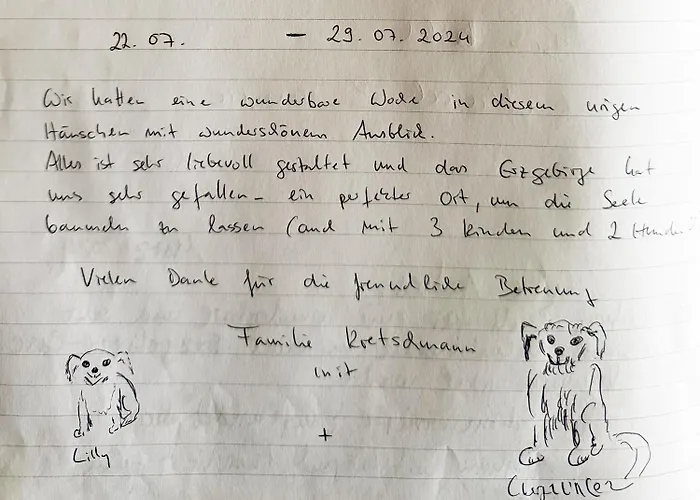 22. 07. — 29. 07. 2024
Wir hatten eine wunderbare Woche in diesem urigen
Häuschen mit wunderschönem Ausblick.
Alles ist sehr liebevoll gestaltet und das Erzgebirge hat
uns sehr gefallen - ein perfekter Ort, um die Seele
baumeln zu lassen (auch mit 3 Kindern und 2 Hunden)
Vielen Dank für die freundliche Betreuung
Familie Kretschmann
mit
Lilly
+